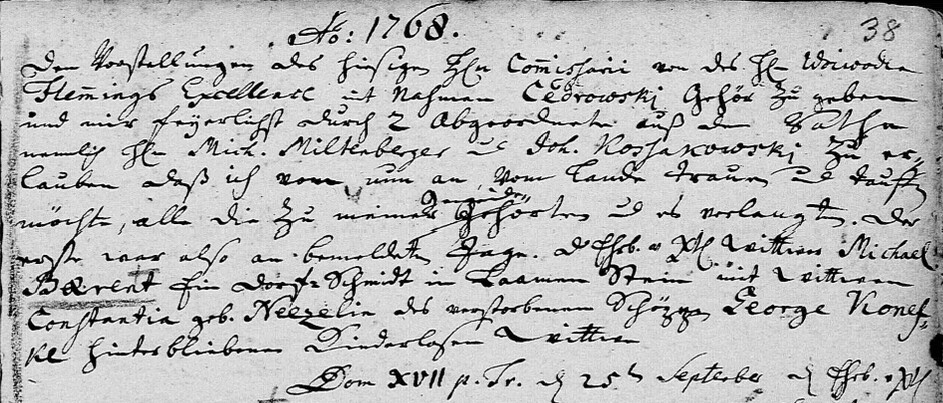 Ao: 1768. 38
Den Vorstellungen des hiesigen Hln Commissarii von des Hln Woiwoden
Flemmings Excellence mit Nahmen Cedrowskj Gehör zu geben
und mir feyerlichst durch 2 Abgeordnete auß dem Rathe
nemlich Hln Mich. Miltenberger ud Joh. Kossakowskj zu er-
lauben daß ich vom nun an, vom Lande trauen ud tauffen
möchte, alle die zu meiner Gemeinde gehörten ud es verlangten. Der
erste war also an bemeldeten Tage. d Michael
Baerent Ein Dorf-Schmidt in Stein mit
Constantia geb. Neezelin des verstorbenen Schöppen George Konef-
ke hinterbliebenen Kinderlosen Wittwe
Dom XVII p. Tr. d 25t September d